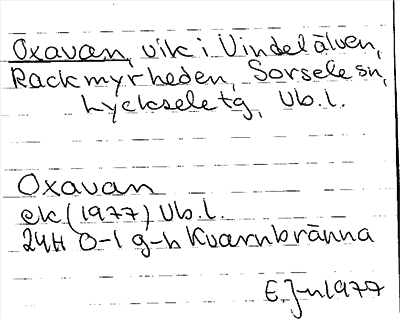 Oxavan, vik i Vindelälven,
Rackmyrheden, Sorsele sn,
Lycksele tg, Vb. l.
Oxavan
ek (1977) Vb. l.
24H 0-1 g-h Kvarnbränna
E. J-n 1977